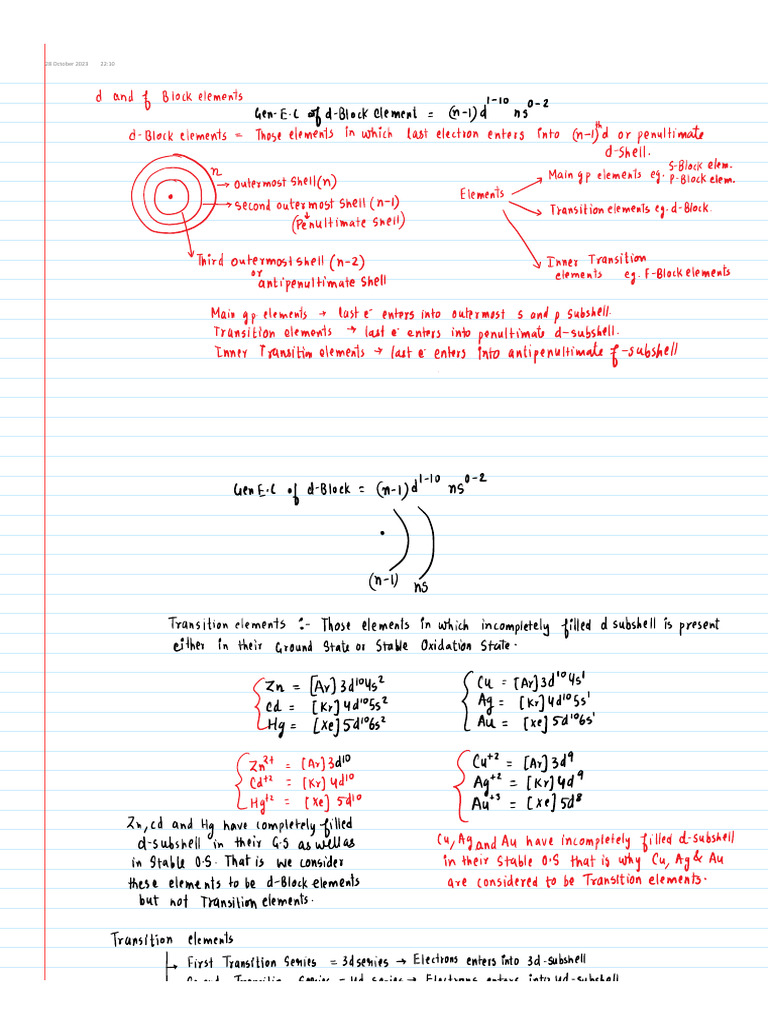 28 October 2023 22:10
d and f Block elements
Gen. E.C of d-Block Element = (n-1)d¹⁻¹⁰ ns⁰⁻²
d-Block elements = Those elements in which last electron enters into (n-1)ᵗʰd or penultimate
d-shell.
n
→ outermost shell (n)
→ second outermost shell (n-1)
(Penultimate shell)
Third outermost shell (n-2)
or
antipenultimate shell
Elements
Main gp elements eg. S-Block elem.
P-Block elem.
Transition elements eg. d-Block.
Inner Transition
elements eg. F-Block elements
Main gp elements → last e⁻ enters into outermost s and p subshell.
Transition elements → last e⁻ enters into penultimate d-subshell.
Inner Transition elements → last e⁻ enters into antipenultimate f-subshell
Gen E.C of d-Block = (n-1)d¹⁻¹⁰ ns⁰⁻²
(n-1) ns
Transition elements :- Those elements in which incompletely filled d subshell is present
either in their Ground State or Stable Oxidation State.
Zn = [Ar] 3d¹⁰4s²
Cd = [Kr] 4d¹⁰5s²
Hg = [Xe] 5d¹⁰6s²
Cu = [Ar] 3d¹⁰4s¹
Ag = [Kr] 4d¹⁰5s¹
Au = [Xe] 5d¹⁰6s¹
Zn²⁺ = [Ar] 3d¹⁰
Cd⁺² = [Kr] 4d¹⁰
Hg⁺² = [Xe] 5d¹⁰
Cu⁺² = [Ar] 3d⁹
Ag⁺² = [Kr] 4d⁹
Au⁺³ = [Xe] 5d⁸
Zn, Cd and Hg have completely filled
d-subshell in their G.S as well as
in Stable O.S. That is we consider
these elements to be d-Block elements
but not Transition elements.
Cu, Ag and Au have incompletely filled d-subshell
in their Stable O.S that is why Cu, Ag & Au
are considered to be Transition elements.
Transition elements
→ First Transition Series = 3d series → Electrons enters into 3d-subshell
Transition Series = 4d series → Electrons enters into 4d-subshell